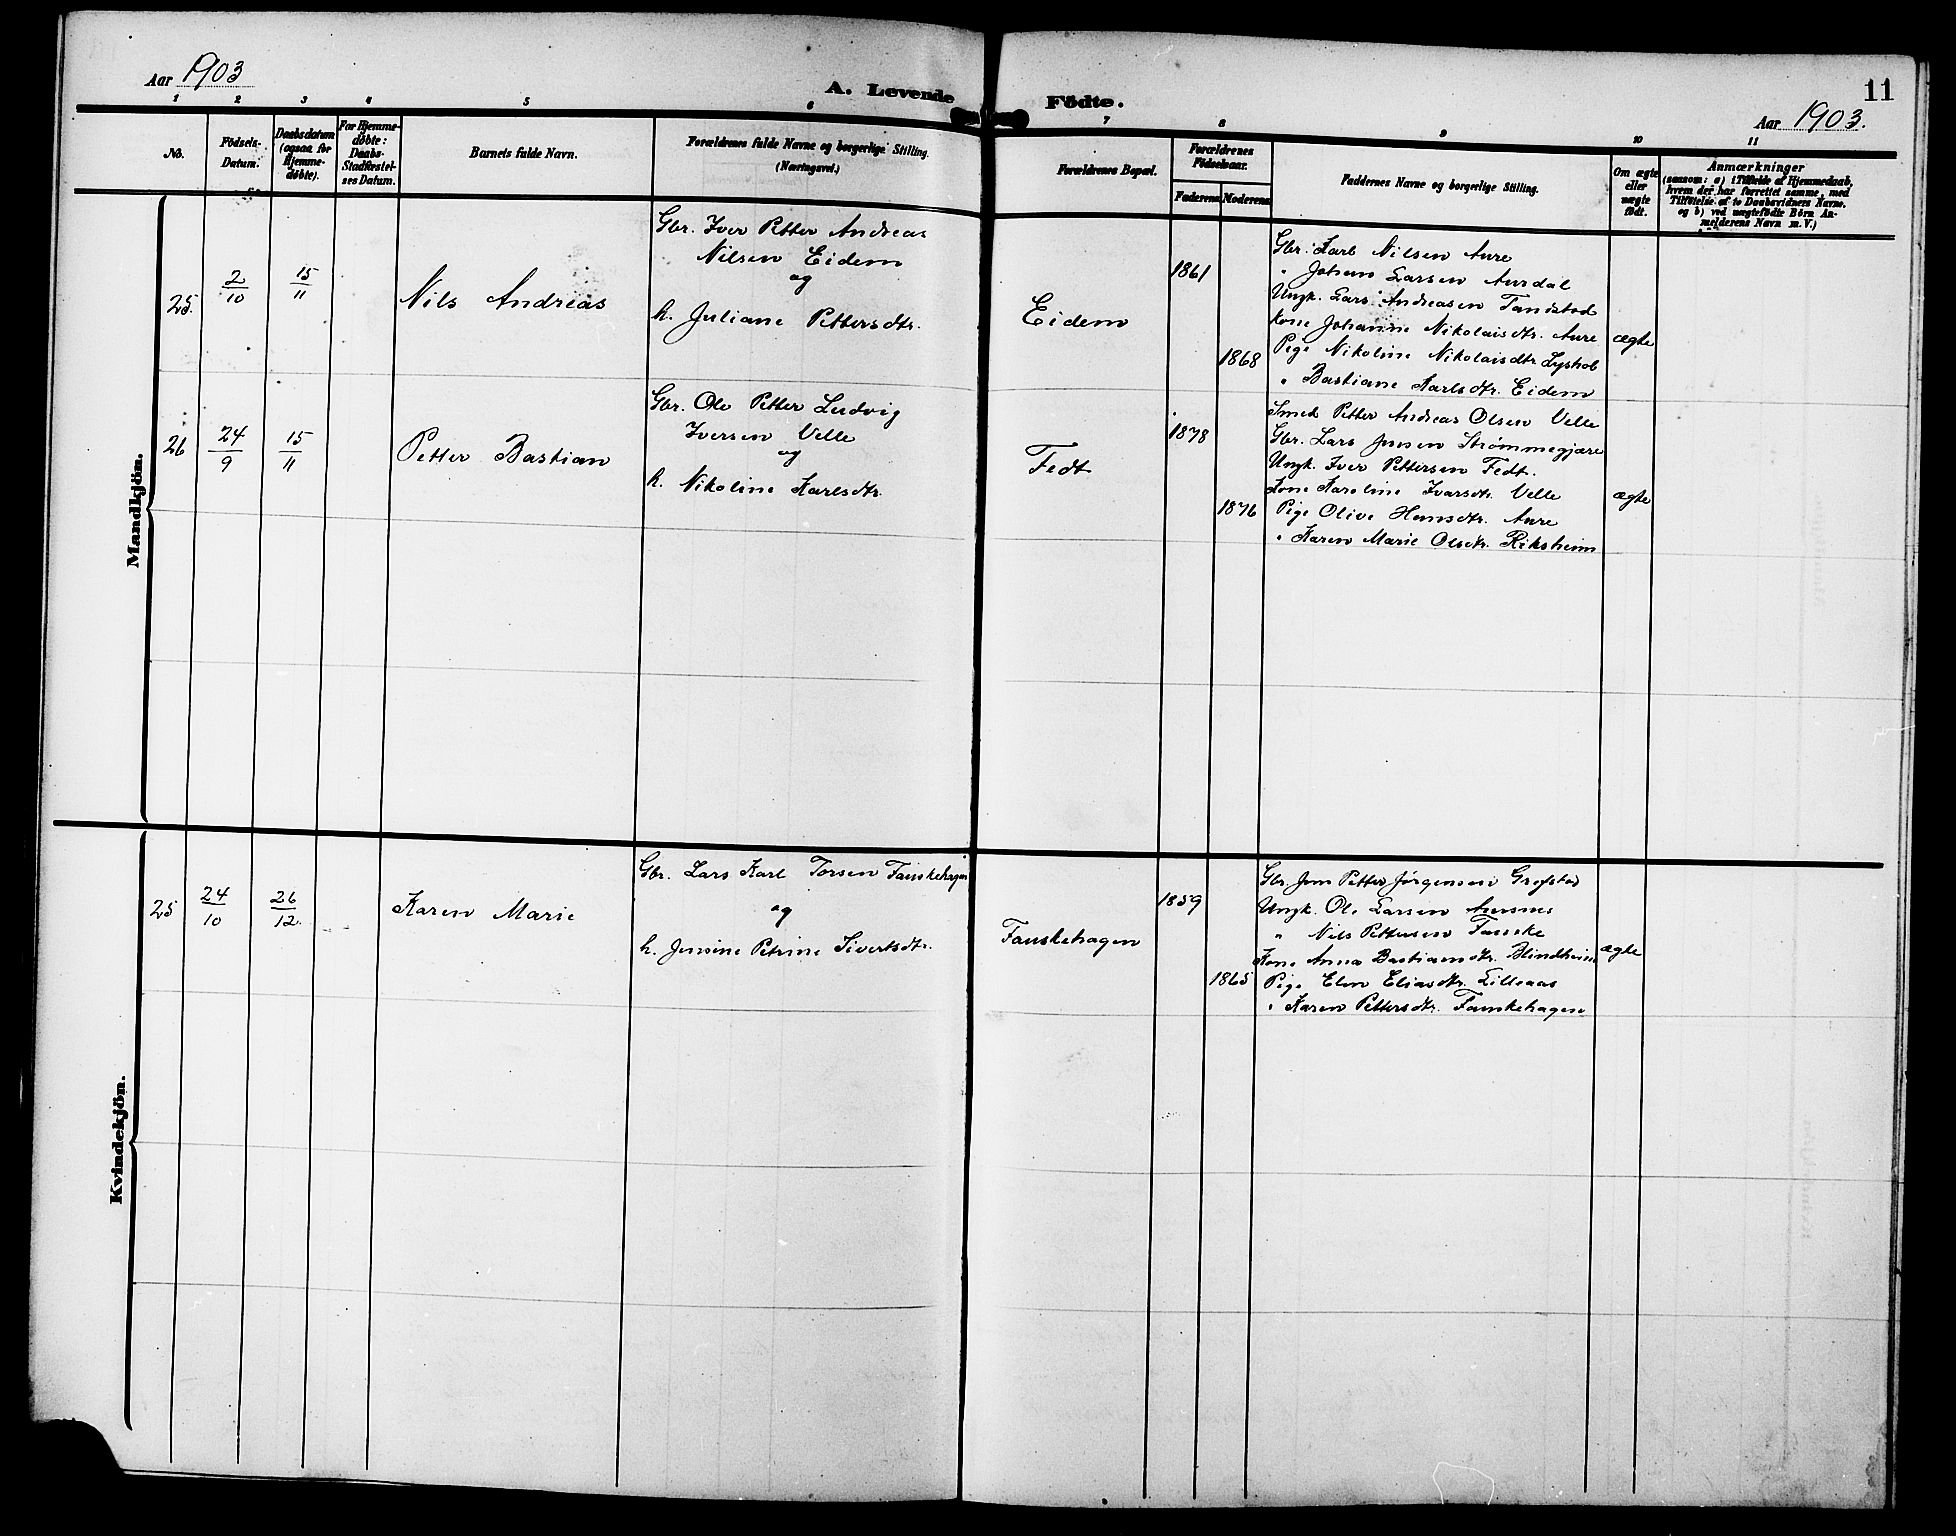 Aar 1903
A. Levende Födte.
11
Aar 1903.
1 2 3 4 5 6 7 8 9 10 11
No.
Födsels-Datum.
Daabsdatum (ogsaa for Hjemme-døbte).
For Hjemme-døbte: Daabs-Stadfæstel-ses Datum.
Barnets fulde Navn.
Forældrenes fulde Navne og borgerlige Stilling. (Næringsvei.)
Forældrenes Bopæl.
Forældrenes Födselsaar.
Faderens Moderens
Faddernes Navne og borgerlige Stilling.
Om ægte eller uægte født.
Anmærkninger
(saasom: a) i Tilfælde af Hjemmedaab,
hvem der har forrettet samme, med
Tilföielse af to Daabsvidners Navne,
og b) ved uægtefödte Börn An-
melderens Navn m. V.)
Mandkjön.
25. 2/10 15/11
Nils Andreas
Gbr. Iver Petter Andreas
Nilsen Eidem
og
h. Juliane Pettersdtr.
Eidem
1861
1868
Gbr. Karl Nilsen Aure
" Johan Larsen Aurdal
Ungk. Lars Andreasen Tandstad
Kone Johanne Nikolaisdtr. Aure
Pige Nikoline Nikolaisdtr Lyshol
" Bastiane Karlsdtr. Eidem
ægte
26 24/9 15/11
Petter Bastian
Gbr. Ole Petter Ludvig
Iversen Velle
og
h. Nikoline Karlsdtr.
Fedt
1878
1876
Smed Petter Andreas Olsen Velle
Gbr. Lars Jensen Strømmegjære
Ungk. Iver Pettersen Fedt.
Kone Karoline Ivarsdtr. Velle
Pige Olive Hansdtr. Aure
" Karen Marie Olsdtr. Riksheim
ægte
Kvindekjön.
25 24/10 26/12
Karen Marie
Gbr. Lars Karl Torsen Fauskehagen
og
h. Jensine Petrine Sivertsdtr.
Fauskehagen
1859
1865
Gbr. Jens Petter Jørgensen Grefstad
Ungk. Ole Larsen Aursnes
" Nils Pettersen Fauske
Kone Anna Bastiansdtr. Blindheim
Pige Elen Eliasdtr. Lilleaas
" Karen Pettersdtr. Fauskehagen
ægte